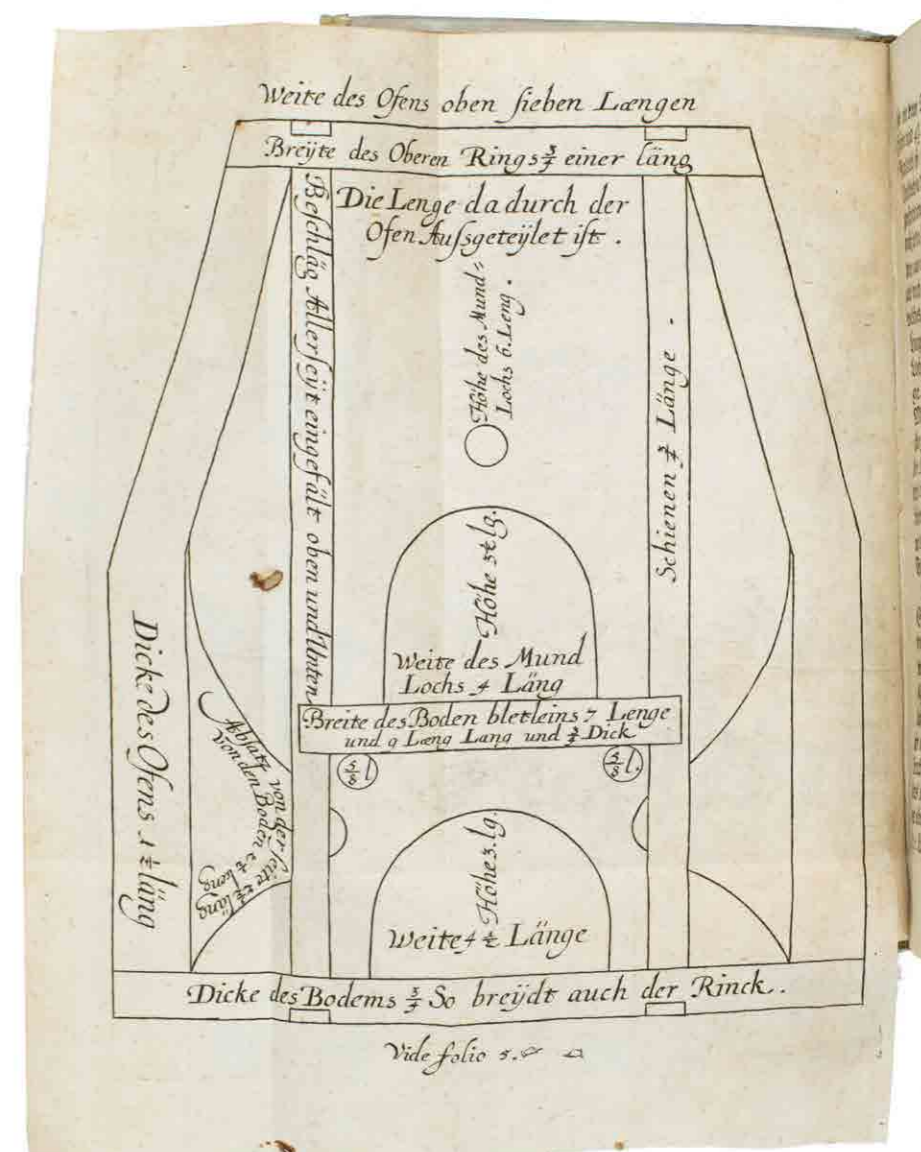 Weite des Ofens oben sieben Længen
Breÿte des Oberen Rings ¾ einer läng
Die Lenge dadurch der
Ofen Aussgeteÿlet ist.
Beschläg Allerseÿt eingefält oben und Unten
Höhe des Mund=
Lochs 6. Leng.
Schienen ¾ Länge.
Höhe
lg.
Weite des Mund
Lochs 4 Läng
Breite des Boden bletleins 7 Lenge
und 9 Læng Lang und Dick
⅝ l
⅝ l.
Dicke des Ofens 1 ½ läng
Absatz von der seite läng
von den Boden Leng
Höhe 3. lg.
Weite 4 ½ Länge
Dicke des Bodems ¾ So breÿdt auch der Rinck.
Vide folio 5.